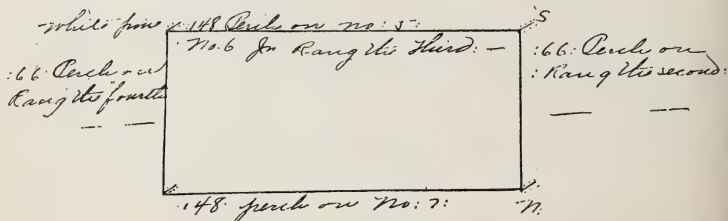 white pine 148 Perch on no: 5: S
No. 6 In Rang the Third: —
:66 Perch on
Rang the fourth
:66: Perch on
: Rang the second:
148 perch on No: 7: N.